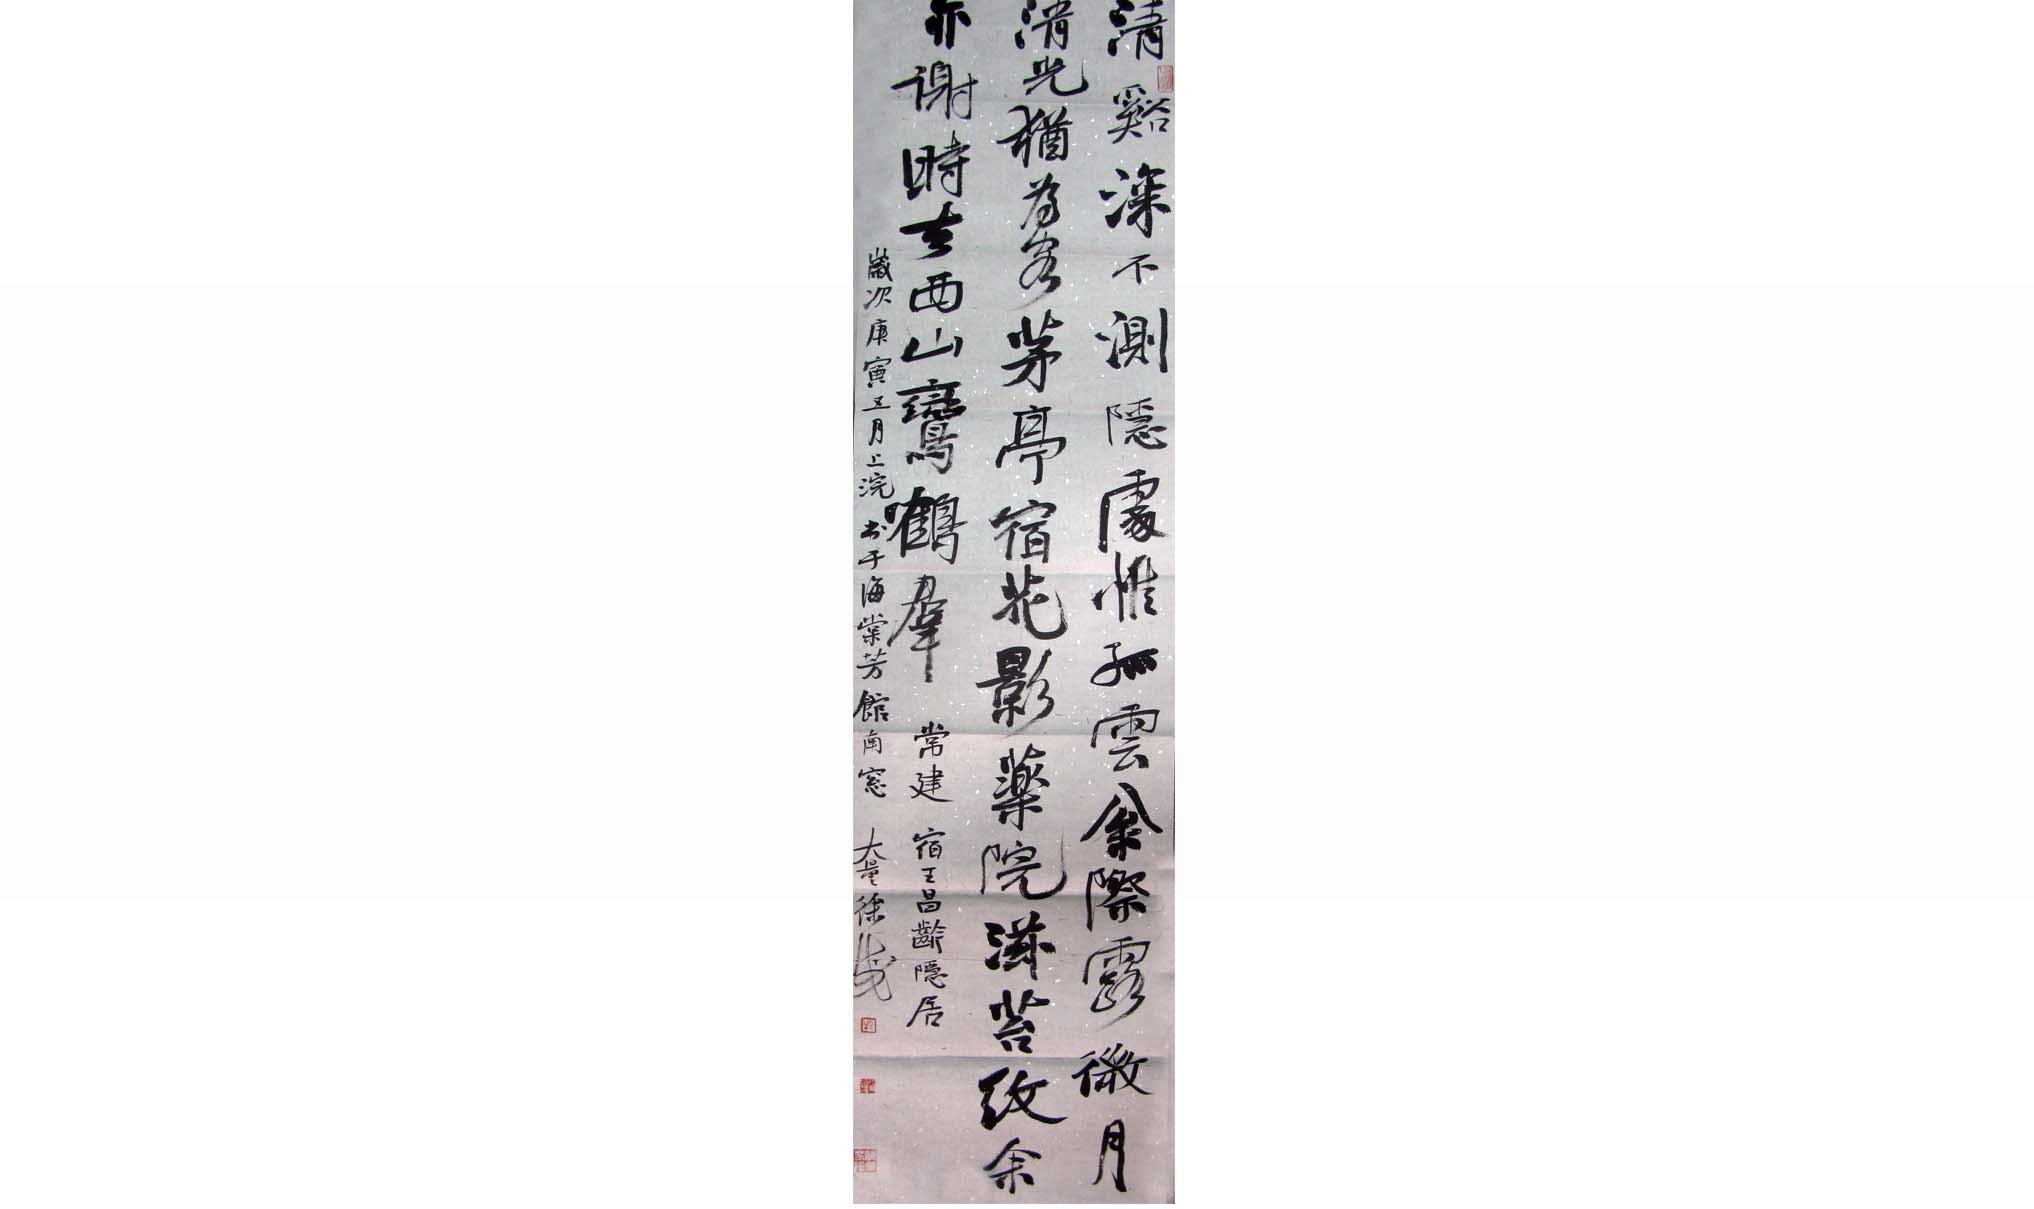 清谿深不測隱處惟孤雲枀際露微月
清光猶為客茅亭宿花影藥院滋苔紋余
亦謝時去西山鸞鶴羣 常建 宿王昌齡隱居
歲次庚寅五月上浣书于海棠芳館南窓 大量徐